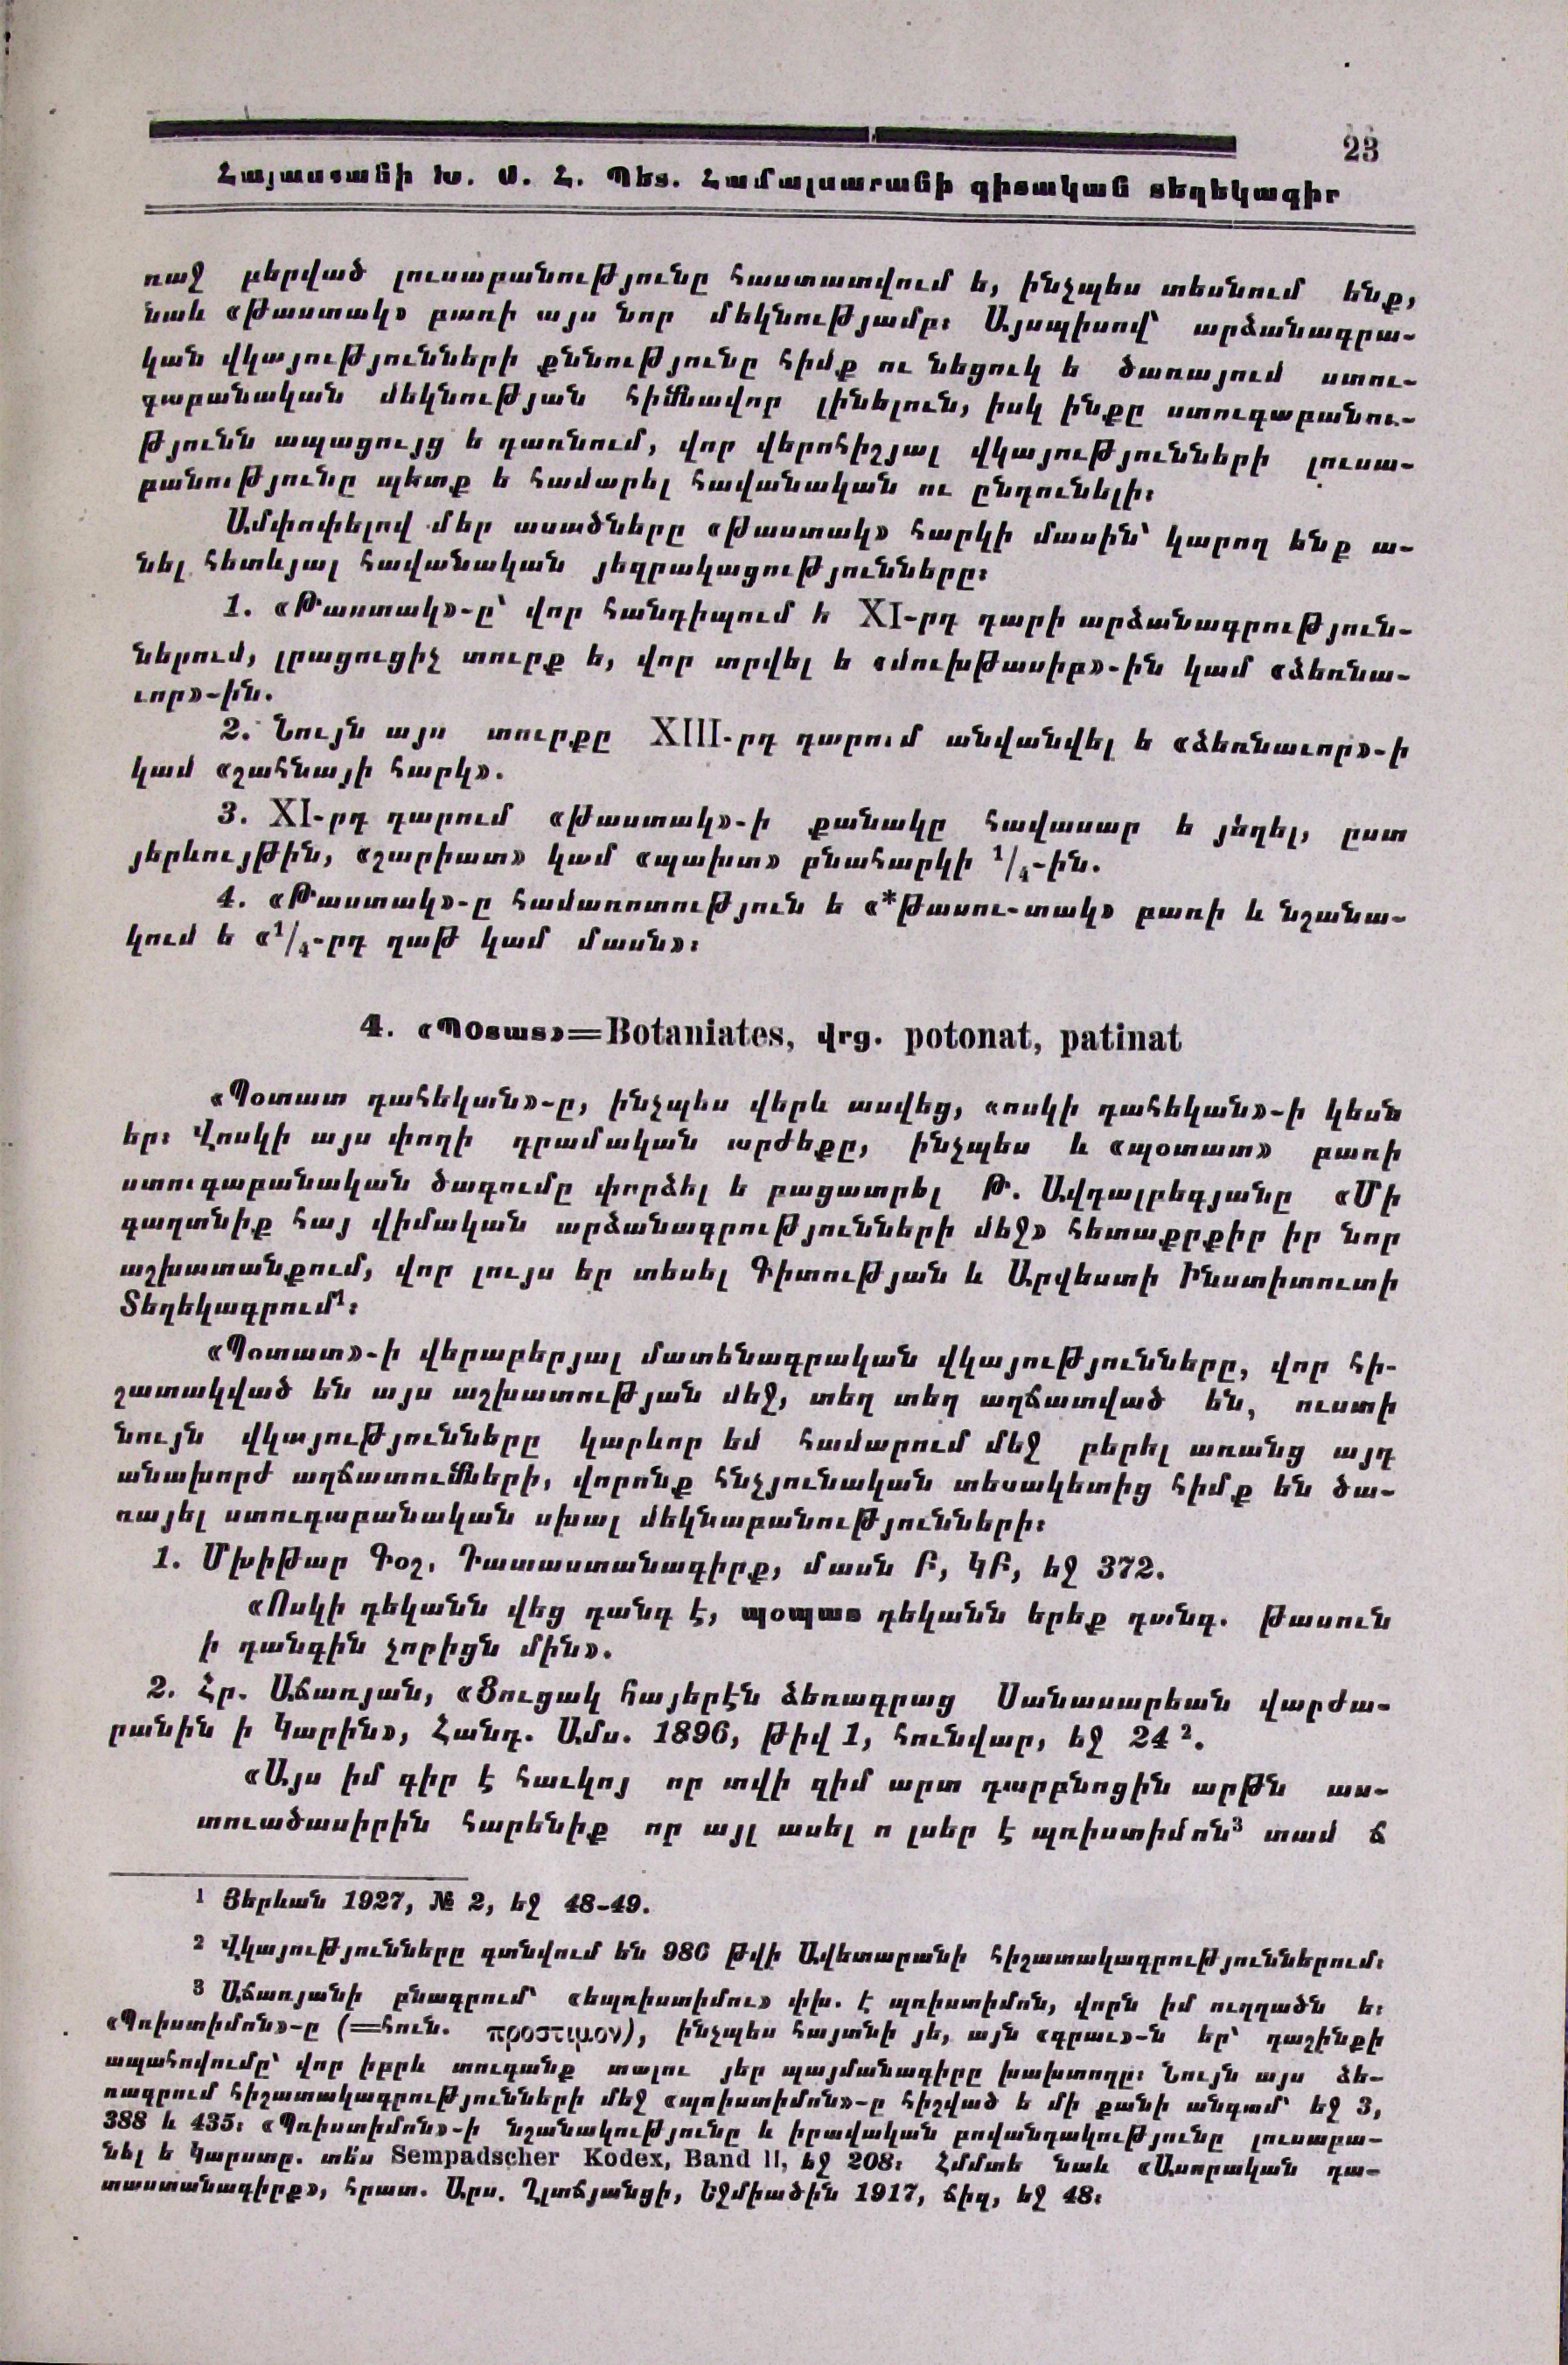 23
Հայաստանի Խ. Ս. Հ. Պետ. Համալսարանի գիտական տեղեկագիր
ռաջ բերված լուսաբանությունը հաստատվում ե, ինչպես տեսնում ենք,
նաև «Թաստակ» բառի այս նոր մեկնությամբ։ Այսպիսով՝ արձանագրա-
կան վկայությունների քննությունը հիմք ու նեցուկ ե ծառայում ստու-
գաբանական մեկնության հիմնավոր լինելուն, իսկ ինքը ստուգաբանու-
թյունն ապացույց ե դառնում, վոր վերոհիշյալ վկայությունների լուսա-
բանությունը պետք ե համարել հավանական ու ընդունելի։
Ամփոփելով մեր ասածները «թաստակ» հարկի մասին՝ կարող ենք ա-
նել հետևյալ հավանական յեզրակացությունները։
1. «Թաստակ»-ը՝ վոր հանդիպում ե XI-րդ դարի արձանագրություն-
ներում, լրացուցիչ տուրք ե, վոր տրվել ե «մուխթասիբ»-ին կամ «ձեռնա-
ւոր»-ին.
2. Նույն այս տուրքը XIII-րդ դարում անվանվել ե «ձեռնաւոր»-ի
կամ «շահնայի հարկ».
3. XI-րդ դարում «թաստակ»-ի քանակը հավասար ե յեղել, ըստ
յերևույթին, «շարիատ» կամ «պախտ» բնահարկի 1/4-ին.
4. «Թաստակ»-ը համառոտություն ե «*թասու-տակ» բառի և նշանա-
կում ե «1/4-րդ ղաթ կամ մասն»։
4. «ՊՕտատ»=Botaniates, վրց. potonat, patinat
«Պօտատ դահեկան»-ը, ինչպես վերև ասվեց, «ոսկի դահեկան»-ի կեսն
եր։ Վոսկի այս փողի դրամական արժեքը, ինչպես և «պօտատ» բառի
ստուգաբանական ծագումը փորձել ե բացատրել Թ. Ավդալբեգյանը «Մի
գաղտնիք հայ վիմական արձանագրությունների մեջ» հետաքրքիր իր նոր
աշխատանքում, վոր լույս եր տեսել Գիտության և Արվեստի Ինստիտուտի
Տեղեկագրում¹։
«Պօտատ»-ի վերաբերյալ մատենագրական վկայությունները, վոր հի-
շատակված են այս աշխատության մեջ, տեղ տեղ աղճատված են, ուստի
նույն վկայությունները կարևոր եմ համարում մեջ բերել առանց այդ
անախորժ աղճատումների, վորոնք հնչյունական տեսակետից հիմք են ծա-
ռայել ստուգաբանական սխալ մեկնաբանությունների։
1. Մխիթար Գօշ. Դատաստանագիրք, մասն Բ, ԿԲ, եջ 372.
«Ոսկի դեկանն վեց դանգ է, պօպատ դեկանն երեք դանգ. թասուն
ի դանգին չորիցն մին».
2. Հր. Աճառյան, «Ցուցակ հայերէն ձեռագրաց Սանասարեան վարժա-
րանին ի Կարին», Հանդ. Ամս. 1896, թիվ 1, հունվար, եջ 24².
«Այս իմ գիր է հաւկոյ որ տվի զիմ արտ դարբնոցին արթն աս-
տուածասիրին հարենիք որ այլ ասել ո լսեր է պռիստիմոն³ տամ ճ
¹ Յերևան 1927, № 2, եջ 48-49.
² Վկայությունները գտնվում են 986 թվի Ավետարանի հիշատակագրություններում։
³ Աճառյանի բնագրում՝ «եպռիստիմու» փխ. է պռիստիմոն, վորն իմ ուղղածն ե։
«Պռիստիմոն»-ը (=հուն. προστιμον), ինչպես հայտնի յե, այն «գրաւ»-ն եր՝ դաշինքի
ապահովումը՝ վոր իբրև տուգանք տալու յեր պայմանագիրը խախտողը։ Նույն այս ձե-
ռագրում հիշատակագրությունների մեջ «պռիստիմոն»-ը հիշված ե մի քանի անգամ՝ եջ 3,
388 և 435։ «Պռիստիմոն»-ի նշանակությունը և իրավական բովանդակությունը լուսաբա-
նել ե Կարստը. տե՛ս Sempadscher Kodex, Band II, եջ 208։ Հմմտե նաև «Ասորական դա-
տաստանագիրք», հրատ. Արս. Ղլտճյանցի, Եջմիածին 1917, ճիզ, եջ 48։